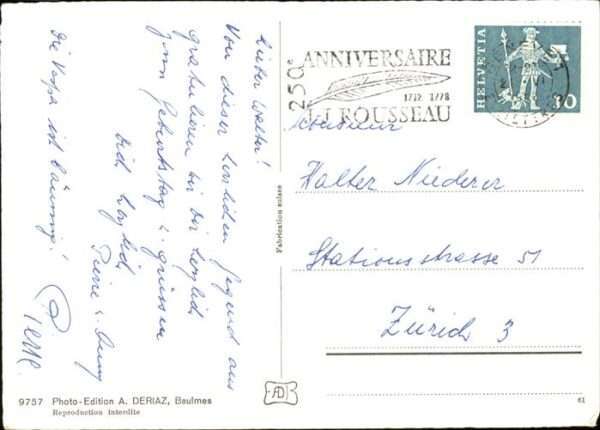 Lieber Walter!
Von dieser herrlichen Gegend aus
gratulieren wir Dir herzlich
zum Geburtstag & grüssen
Dich herzlich
Pierre &
Die Vespa ist bäumig!
Pierre
250e ANNIVERSAIRE
1712 1778
J.J. ROUSSEAU
HELVETIA
10
Monsieur
Walter Niederer
Stationsstrasse 51
Zürich 3
Fabrication suisse
9757 Photo-Edition A. DERIAZ, Baulmes
Reproduction interdite
AD
61